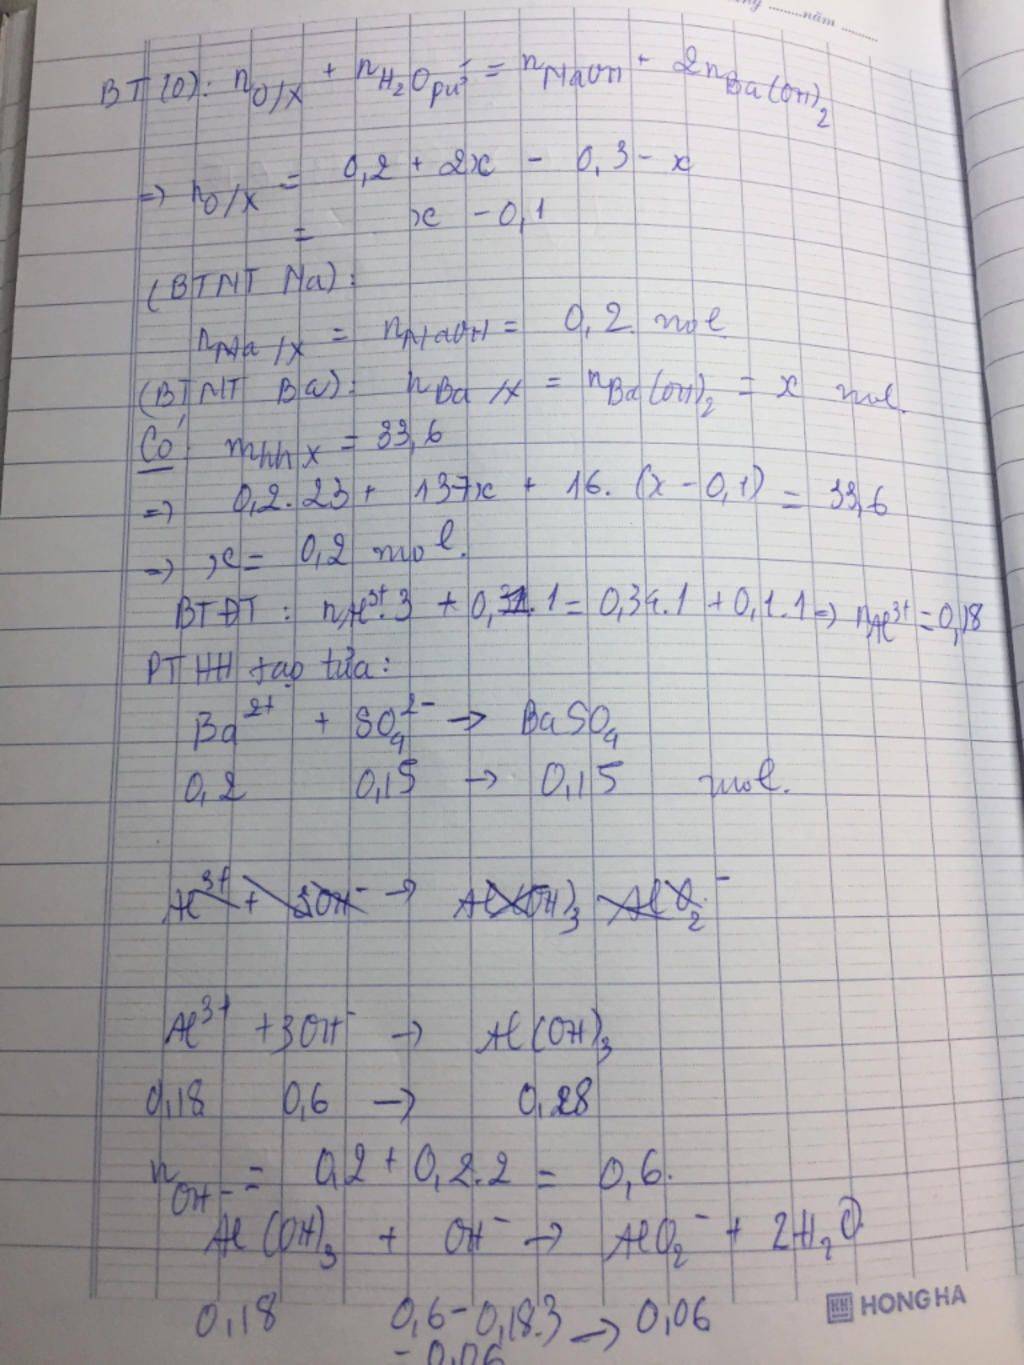 năm
BT(O): nO/X + nH₂O pứ = nNaOH + 2nBa(OH)₂
=> nO/X = 0,2 + 2x - 0,3 - x
= x - 0,1
(BTNT Na):
nNa/X = nNaOH = 0,2 mol
(BTNT Ba): nBa/X = nBa(OH)₂ = x mol.
Có: mhh X = 33,6
=> 0,2.23 + 137x + 16.(x-0,1) = 33,6
=> x = 0,2 mol.
BTĐT: nAl³⁺.3 + 0,1.1 = 0,34.1 + 0,1.1 => nAl³⁺ = 0,18
PTHH tạo tủa:
Ba²⁺ + SO₄²⁻ → BaSO₄
0,2 0,15 → 0,15 mol.
Al³⁺ + 3OH⁻ → Al(OH)₃ AlO₂⁻
Al³⁺ + 3OH⁻ → Al(OH)₃
0,18 0,6 → 0,28
nOH⁻ = 0,2 + 0,2.2 = 0,6.
Al(OH)₃ + OH⁻ → AlO₂⁻ + 2H₂O
0,18 0,6-0,18.3 → 0,06
= 0,06
HONG HA